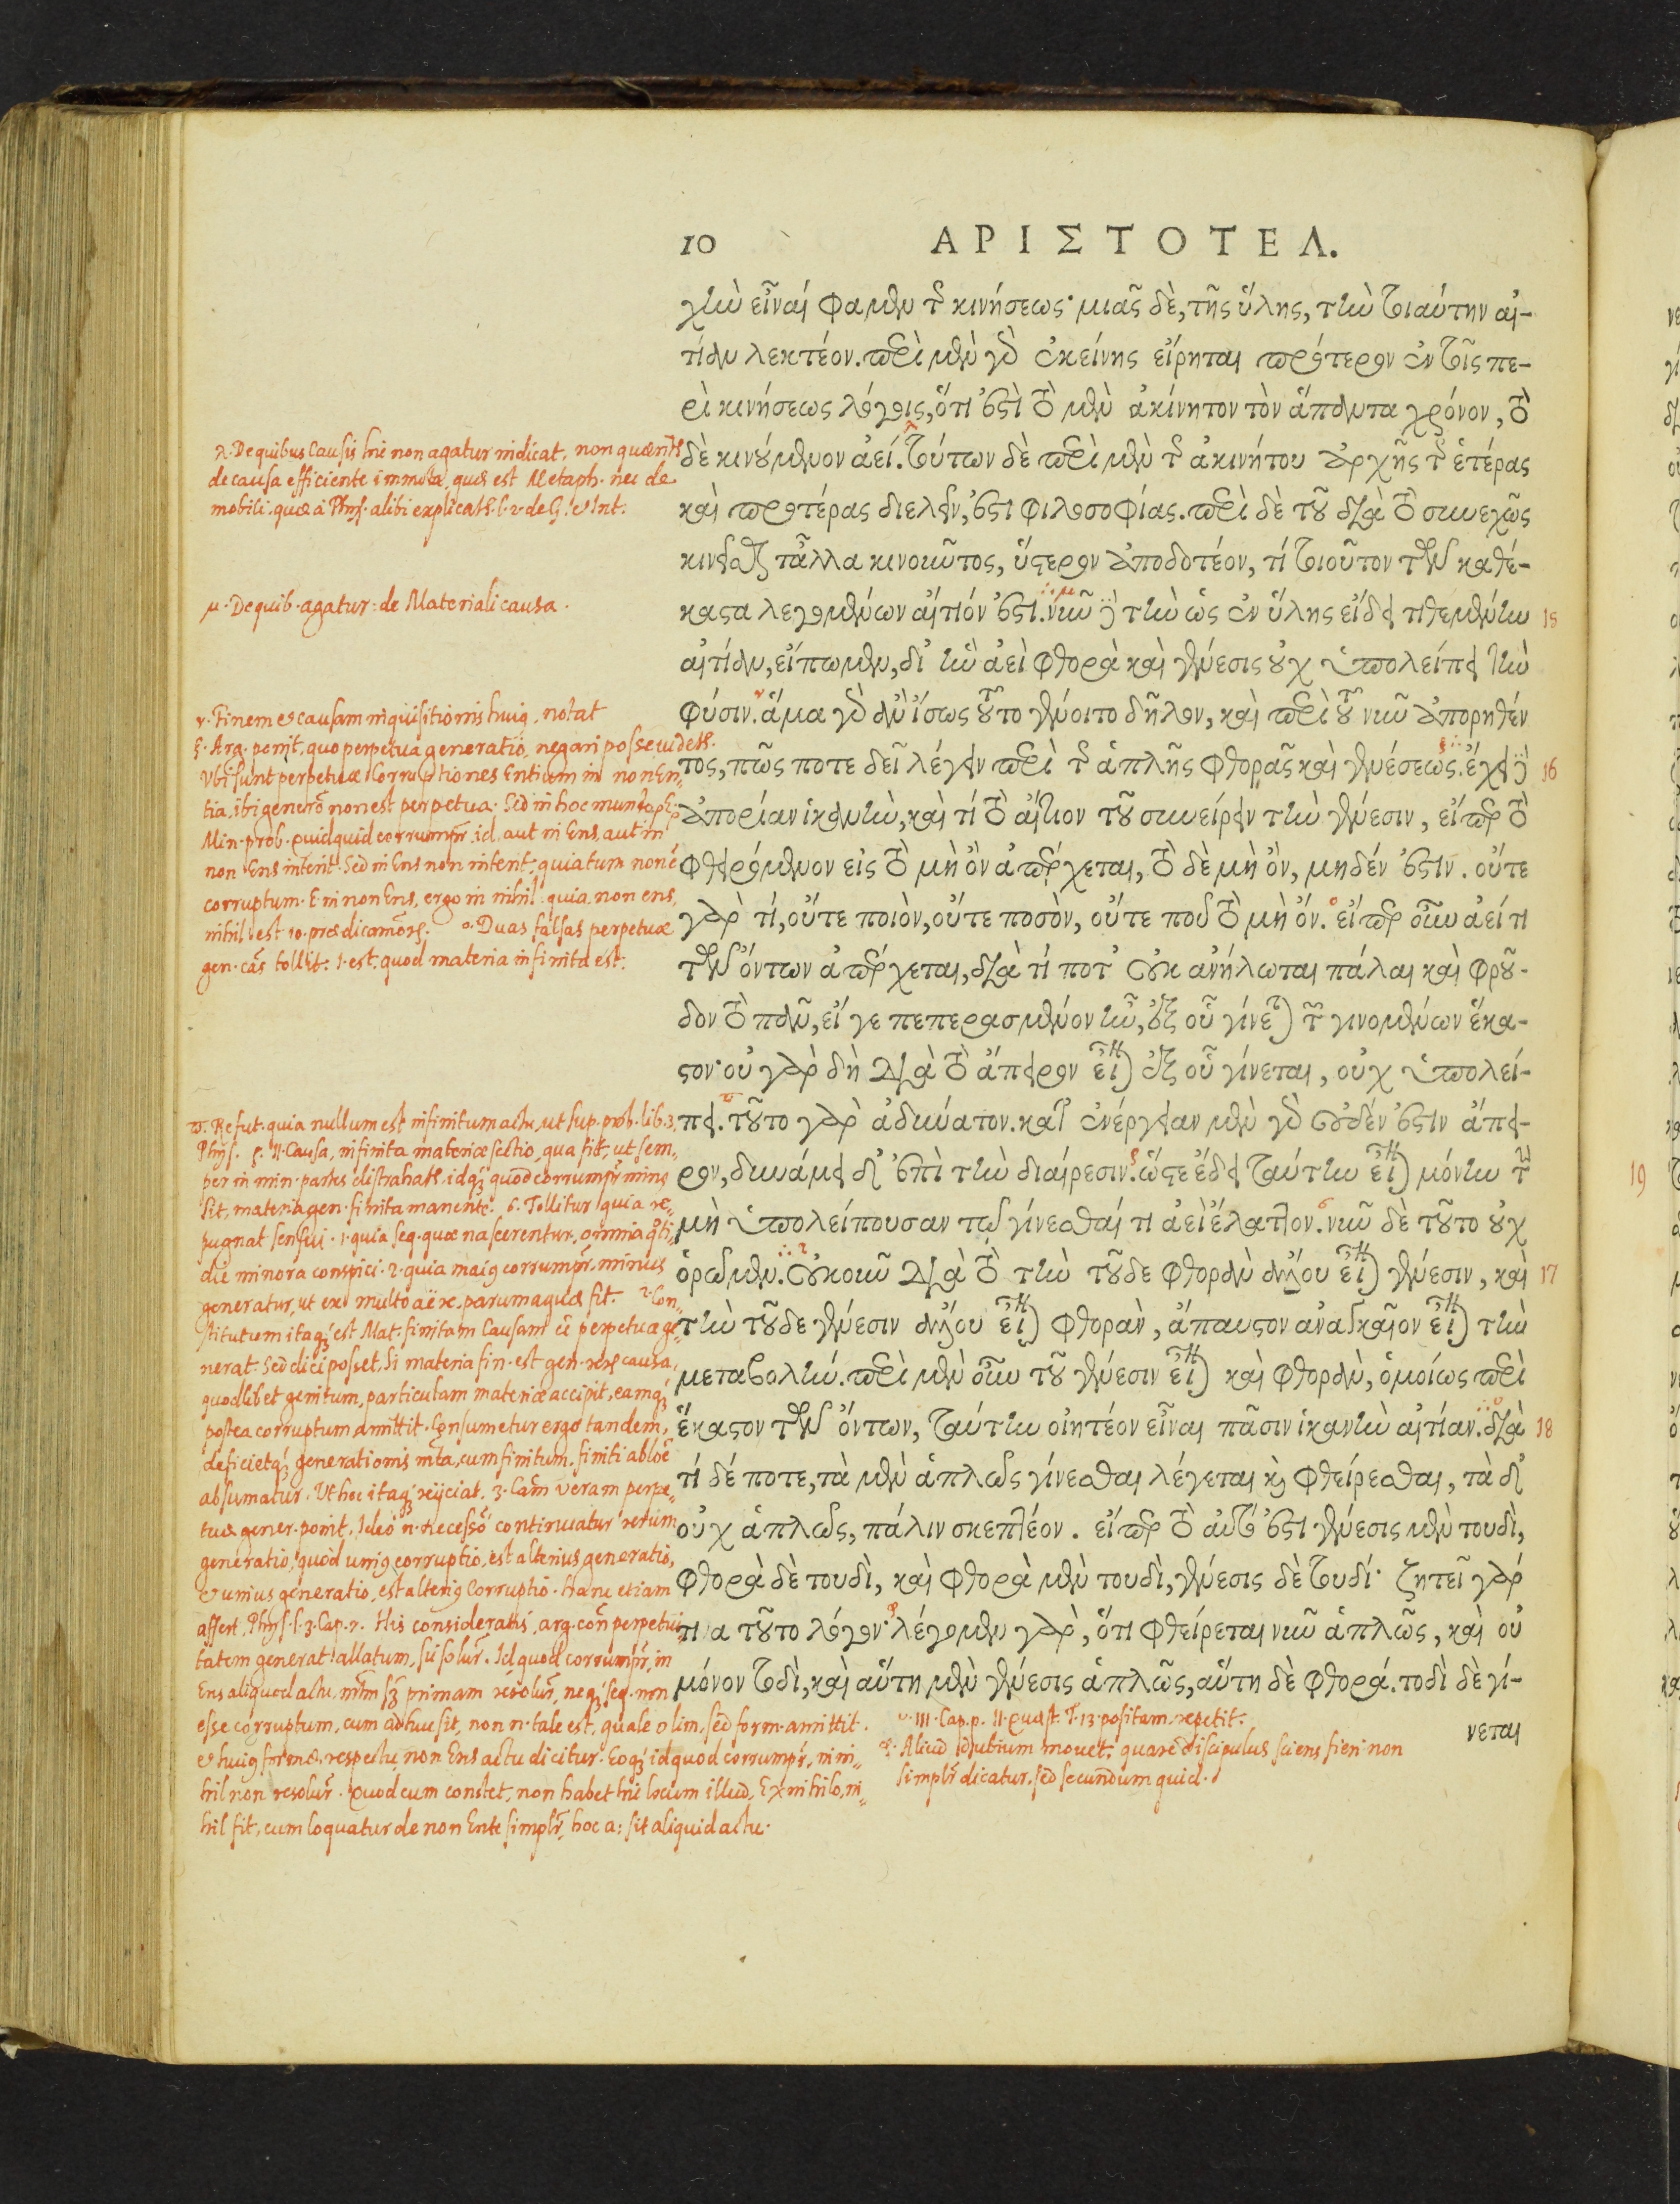 10 ΑΡΙΣΤΟΤΕΛ.
χὴν εἶναί φαμεν τῆς κινήσεως· μιᾶς δὲ, τῆς ὕλης, τὴν τοιαύτην αἰ-
τίαν λεκτέον. περὶ μὲν γὰρ ἐκείνης εἴρηται πρότερον ἐν τοῖς πε-
ρὶ κινήσεως λόγοις, ὅτι ἐστὶ τὸ μὲν ἀκίνητον τὸν ἅπαντα χρόνον, τὸ
δὲ κινούμενον ἀεί. τούτων δὲ περὶ μὲν τῆς ἀκινήτου ἀρχῆς τῆς ἑτέρας
καὶ προτέρας διελεῖν, ἐστι φιλοσοφίας. περὶ δὲ τοῦ διὰ τὸ συνεχῶς
κινεῖσθαι τἆλλα κινοῦντος, ὕστερον ἀποδοτέον, τί τοιοῦτον τῶν καθέ-
καστα λεγομένων αἴτιόν ἐστι. νῦν δὲ τὴν ὡς ἐν ὕλης εἴδει τιθεμένην 15
αἰτίαν, εἴπωμεν, δι' ἣν ἀεὶ φθορὰ καὶ γένεσις οὐχ ὑπολείπει τὴν
φύσιν. ἅμα γὰρ ἂν ἴσως τοῦτο γένοιτο δῆλον, καὶ περὶ τοῦ νῦν ἀπορηθέν
τος, πῶς ποτε δεῖ λέγειν περὶ τῆς ἁπλῆς φθορᾶς καὶ γενέσεως. ἔχει δὲ 16
ἀπορίαν ἱκανὴν, καὶ τί τὸ αἴτιον τοῦ συνείρειν τὴν γένεσιν, εἴπερ τὸ
φθειρόμενον εἰς τὸ μὴ ὂν ἀπέρχεται, τὸ δὲ μὴ ὂν, μηδέν ἐστιν. οὔτε
γὰρ τί, οὔτε ποιὸν, οὔτε ποσὸν, οὔτε ποῦ τὸ μὴ ὄν. εἴπερ οὖν ἀεί τι
τῶν ὄντων ἀπέρχεται, διὰ τί ποτ' οὐκ ἀνήλωται πάλαι καὶ φροῦ-
δον τὸ πᾶν, εἴ γε πεπερασμένον ἦν, ἐξ οὗ γίνεται τῶν γινομένων ἕκα-
στον· οὐ γὰρ δὴ διὰ τὸ ἄπειρον εἶναι ἐξ οὗ γίνεται, οὐχ ὑπολεί-
πει. τοῦτο γὰρ ἀδύνατον. κατ' ἐνέργειαν μὲν γὰρ οὐδέν ἐστιν ἄπει-
ρον, δυνάμει δ' ἐπὶ τὴν διαίρεσιν. ὥστε ἔδει ταύτην εἶναι μόνην τὴν
μὴ ὑπολείπουσαν τῷ γίνεσθαί τι ἀεὶ ἔλαττον. νῦν δὲ τοῦτο οὐχ
ὁρῶμεν. οὐκοῦν διὰ τὸ τὴν τοῦδε φθορὰν ἄλλου εἶναι γένεσιν, καὶ 17
τὴν τοῦδε γένεσιν ἄλλου εἶναι φθορὰν, ἄπαυστον ἀναγκαῖον εἶναι τὴν
μεταβολήν. περὶ μὲν οὖν τοῦ γένεσιν εἶναι καὶ φθορὰν, ὁμοίως περὶ
ἕκαστον τῶν ὄντων, ταύτην οἰητέον εἶναι πᾶσιν ἱκανὴν αἰτίαν. διὰ 18
τί δέ ποτε, τὰ μὲν ἁπλῶς γίνεσθαι λέγεται καὶ φθείρεσθαι, τὰ δ'
οὐχ ἁπλῶς, πάλιν σκεπτέον. εἴπερ τὸ αὐτό ἐστι γένεσις μὲν τουδὶ,
φθορὰ δὲ τουδὶ, καὶ φθορὰ μὲν τουδὶ, γένεσις δὲ τουδί· ζητεῖ γάρ
τινα τοῦτο λόγον· λέγομεν γὰρ, ὅτι φθείρεται νῦν ἁπλῶς, καὶ οὐ
μόνον τοδὶ, καὶ αὕτη μὲν γένεσις ἁπλῶς, αὕτη δὲ φθορά. τοδὶ δὲ γί-
νεται
λ. De quibus Causis hic non agatur indicat, non quaerit
de causa efficiente immota, quae est Metaph. nec de
mobili. quae à Phys. alibi explicatr. l. 2. de G. & Int.
μ. De quib. agatur: de Materiali causa.
ν. Finem et causam inquisitionis huius notat
ξ. Arg. ponit, quo perpetua generatio, negari posse videtr.
Ubi sunt perpetuae Corruptiones Entium in non En-
tia, ibi generatio non est perpetua. Sed in hoc mundo
Min. prob. Quidquid corrumpitr, id, aut in Ens, aut in
non Ens interit. Sed in Ens non interit, quia tum non ē
corruptum. E. in non Ens, ergo in nihil: quia non ens,
nihil est 10. praedicamtors. ο. Duas falsas perpetuae
gen. cās tollit. 1. est: quod materia infinita est.
π. Refut. quia nullum est infinitum actu, ut sup. prob. lib. 3.
Phys. ρ. II. Causa, infinita materiae sectio, qua fit, ut sem-
per in min. partes distrahatr. idq; quod corrumpitr minus
sit, materia gen. finita manente. σ. Tollitur quia re-
pugnat sensui. 1. quia seq. quae nascerentur, omnia
die minora conspici. 2. quia maius corrumpitr, minus
generatur, ut ex multo aëre, parum aquae fit. τ. Con-
stitutum itaq; est Mat: finitam Causam ēē perpetuae ge-
nerat. Sed dici posset, Si materia fin. est gen. causa,
quodlibet genitum, particulam materiae accipit, eamq;
postea corruptum amittit. Consumetur ergo tandem,
deficietq; generationis mta, cum finitum, finiti
absumatur. Ut hoc itaq; reijciat, 3. Cām veram perpe-
tuae gener. ponit. Ideo n. necessō continuatur rerum
generatio, quòd unius corruptio, est alterius generatio,
& unius generatio, est alterius Corruptio. Hanc etiam
affert, Phys. l. 3. Cap. 7. His consideratis, arg. con perpetui-
tatem generat. allatum, sic solvr. Id quod corrumpitr, in
Ens aliquod actu, primam resolvr, neq; seq. non
esse corruptum, cum adhuc sit, non n. tale est, quale olim, sed form. amittit.
& huius formae, respectu, non Ens actu dicitur. Eoq; id quod corrumpr, in ni-
hil non resolvr. Quod cum constet, non habet hic locum illud, Ex nihilo, ni-
hil fit, cum loquatur de non Ente simplr, hoc a: sit aliquid actu.
υ. III. Cap. p. II. Quaest. T. 13. positam, repetit.
φ. Aliud dubium movet, quare discipulus sciens fieri non
simplr dicatur, sed secundum quid.
19